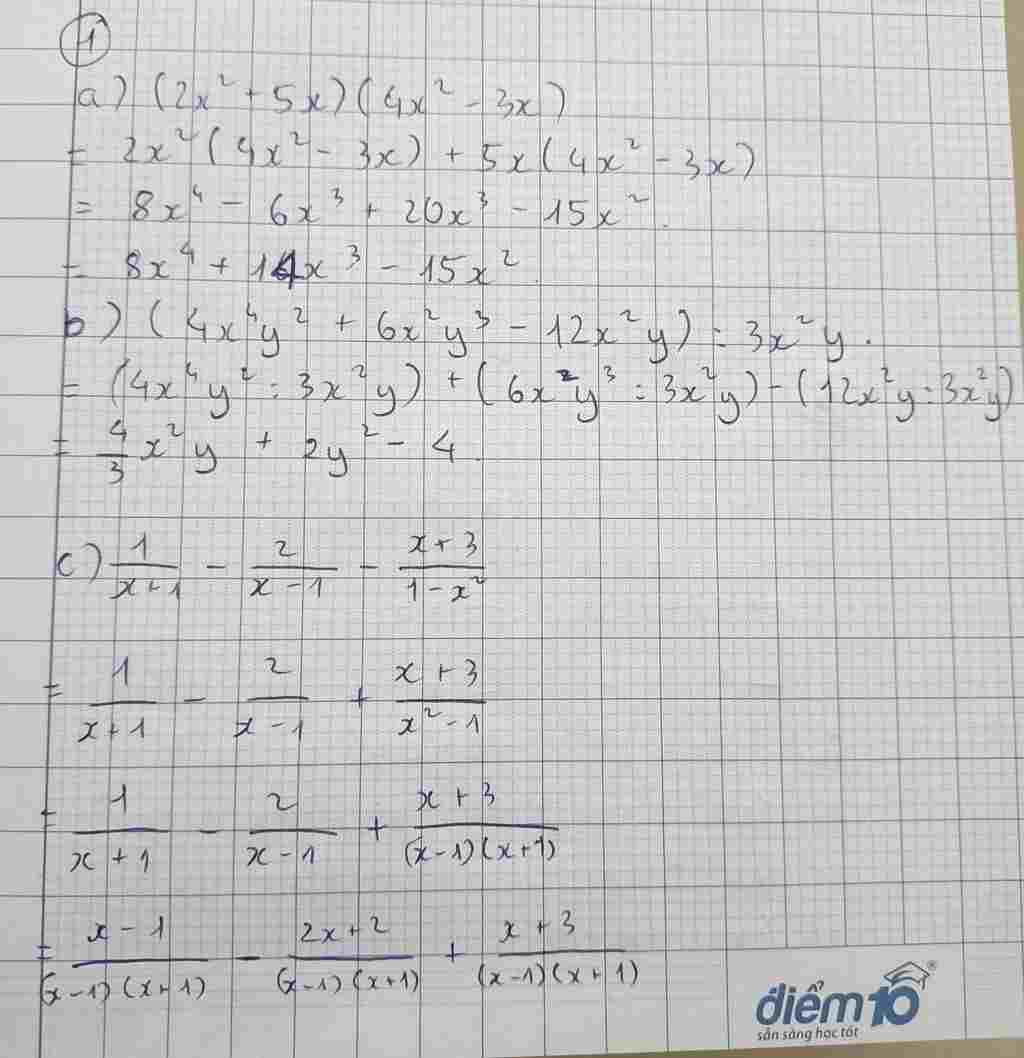 1
a) (2x² + 5x)(4x² - 3x)
= 2x²(4x² - 3x) + 5x(4x² - 3x)
= 8x⁴ - 6x³ + 20x³ - 15x².
= 8x⁴ + 14x³ - 15x².
b) (4x⁴y² + 6x²y³ - 12x²y) : 3x²y.
= (4x⁴y² : 3x²y) + (6x²y³ : 3x²y) - (12x²y : 3x²y)
= 4/3 x²y + 2y² - 4.
c) 1/(x+1) - 2/(x-1) - (x+3)/(1-x²)
= 1/(x+1) - 2/(x-1) + (x+3)/(x²-1)
= 1/(x+1) - 2/(x-1) + (x+3)/((x-1)(x+1))
= (x-1)/((x-1)(x+1)) - (2x+2)/((x-1)(x+1)) + (x+3)/((x-1)(x+1))
điểm10
sẵn sàng học tốt